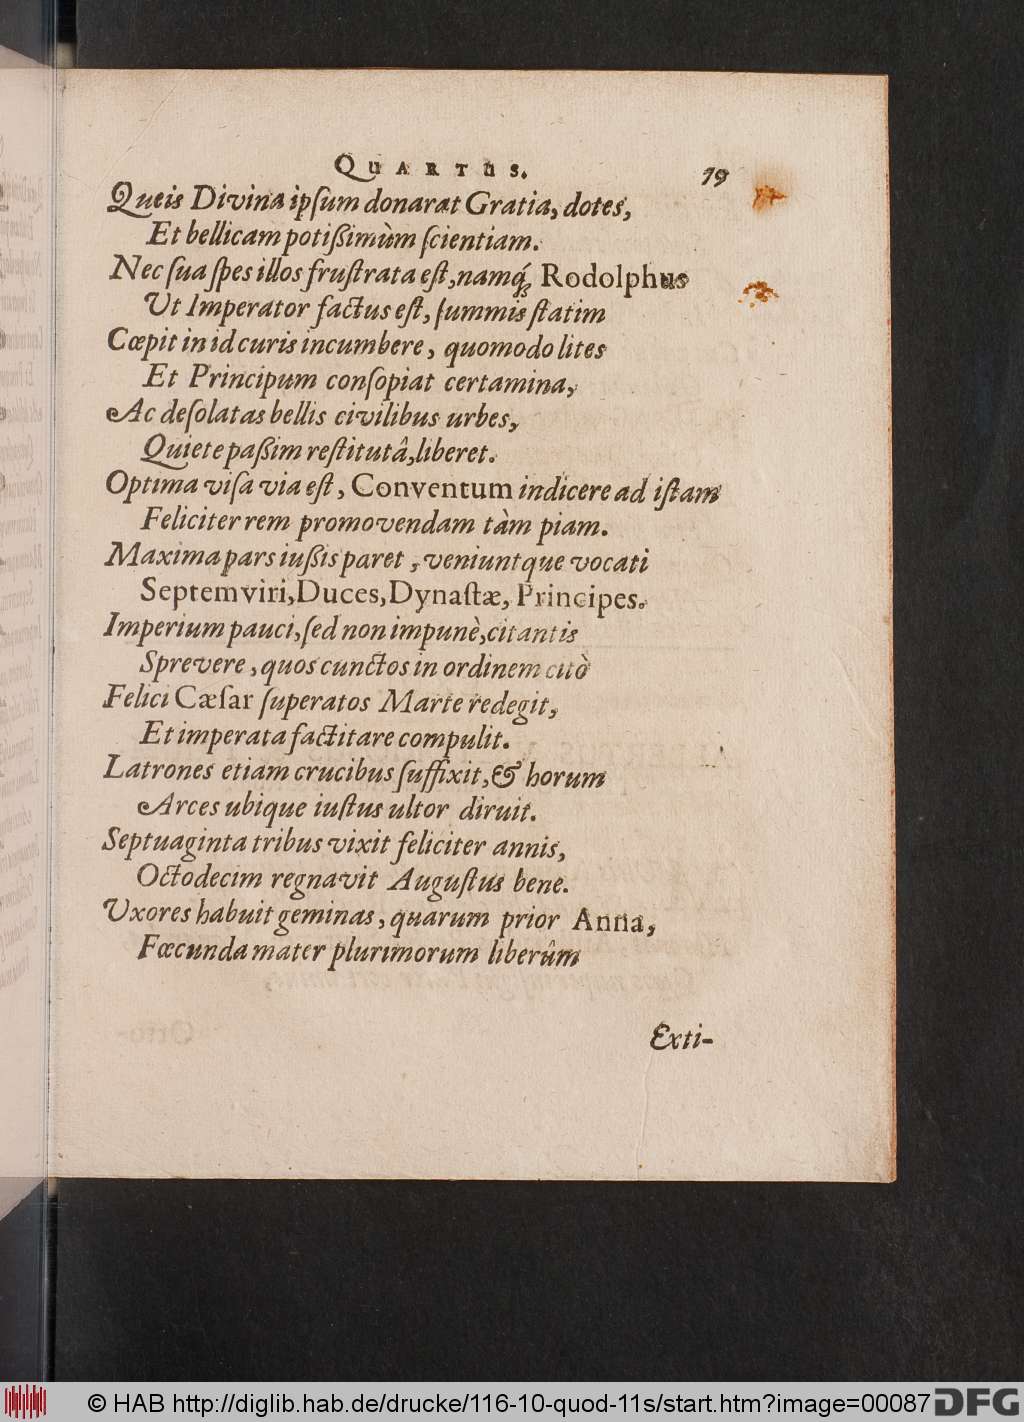 QUARTUS. 79
Queis Divina ipſum donarat Gratia, dotes,
Et bellicam potißimùm ſcientiam.
Nec ſua ſpes illos fruſtrata eſt, namq́; Rodolphus
Ut Imperator factus eſt, ſummis ſtatim
Cœpit in id curis incumbere, quomodo lites
Et Principum conſopiat certamina,
Ac deſolatas bellis civilibus urbes,
Quiete paßim reſtitutâ, liberet.
Optima viſa via eſt, Conventum indicere ad iſtam
Feliciter rem promovendam tàm piam.
Maxima pars iußis paret, veniuntque vocati
Septemviri, Duces, Dynaſtæ, Principes.
Imperium pauci, ſed non impunè, citantis
Sprevere, quos cunctos in ordinem citò
Felici Cæſar ſuperatos Marte redegit,
Et imperata factitare compulit.
Latrones etiam crucibus ſuffixit, & horum
Arces ubique iuſtus ultor diruit.
Septuaginta tribus vixit feliciter annis,
Octodecim regnavit Auguſtus bene.
Uxores habuit geminas, quarum prior Anna,
Fœcunda mater plurimorum liberûm
Exti-
© HAB http://diglib.hab.de/drucke/116-10-quod-11s/start.htm?image=00087
DFG